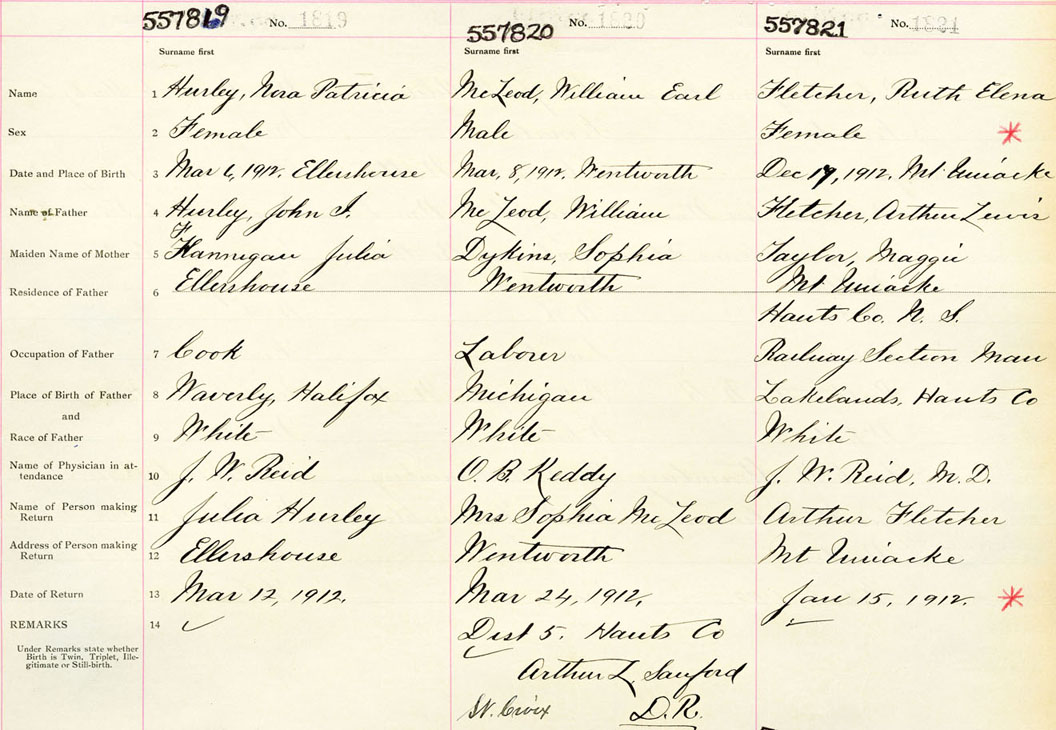 557819 No. 1819 557820 No. 1820 557821 No. 1821
Surname first Surname first Surname first
Name 1 Hurley, Nora Patricia McLeod, William Earl Fletcher, Ruth Elena
Sex 2 Female Male Female *
Date and Place of Birth 3 Mar 6, 1912. Ellershouse Mar, 8, 1912. Wentworth Dec 17, 1912. Mt. Uniacke
Name of Father 4 Hurley, John J. McLeod, William Fletcher, Arthur Lewis
Maiden Name of Mother 5 Flannigan Julia Dykins, Sophia Taylor, Maggie
Residence of Father 6 Ellershouse Wentworth Mt Uniacke
Hants Co. N. S.
Occupation of Father 7 Cook Laborer Railway Section Man
Place of Birth of Father 8 Waverly, Halifax Michigan Lakelands, Hants Co
and
Race of Father 9 White White White
Name of Physician in at-
tendance 10 J. W. Reid O. B. Keddy J. W. Reid, M. D.
Name of Person making
Return 11 Julia Hurley Mrs Sophia McLeod Arthur Fletcher
Address of Person making
Return 12 Ellershouse Wentworth Mt Uniacke
Date of Return 13 Mar 12, 1912. Mar 24, 1912. Jan 15, 1912. *
REMARKS 14 ✓ Dist 5. Hants Co
Under Remarks state whether
Birth is Twin, Triplet, Ille-
gitimate or Still-birth.
Arthur L. Sanford
St. Croix D.R.